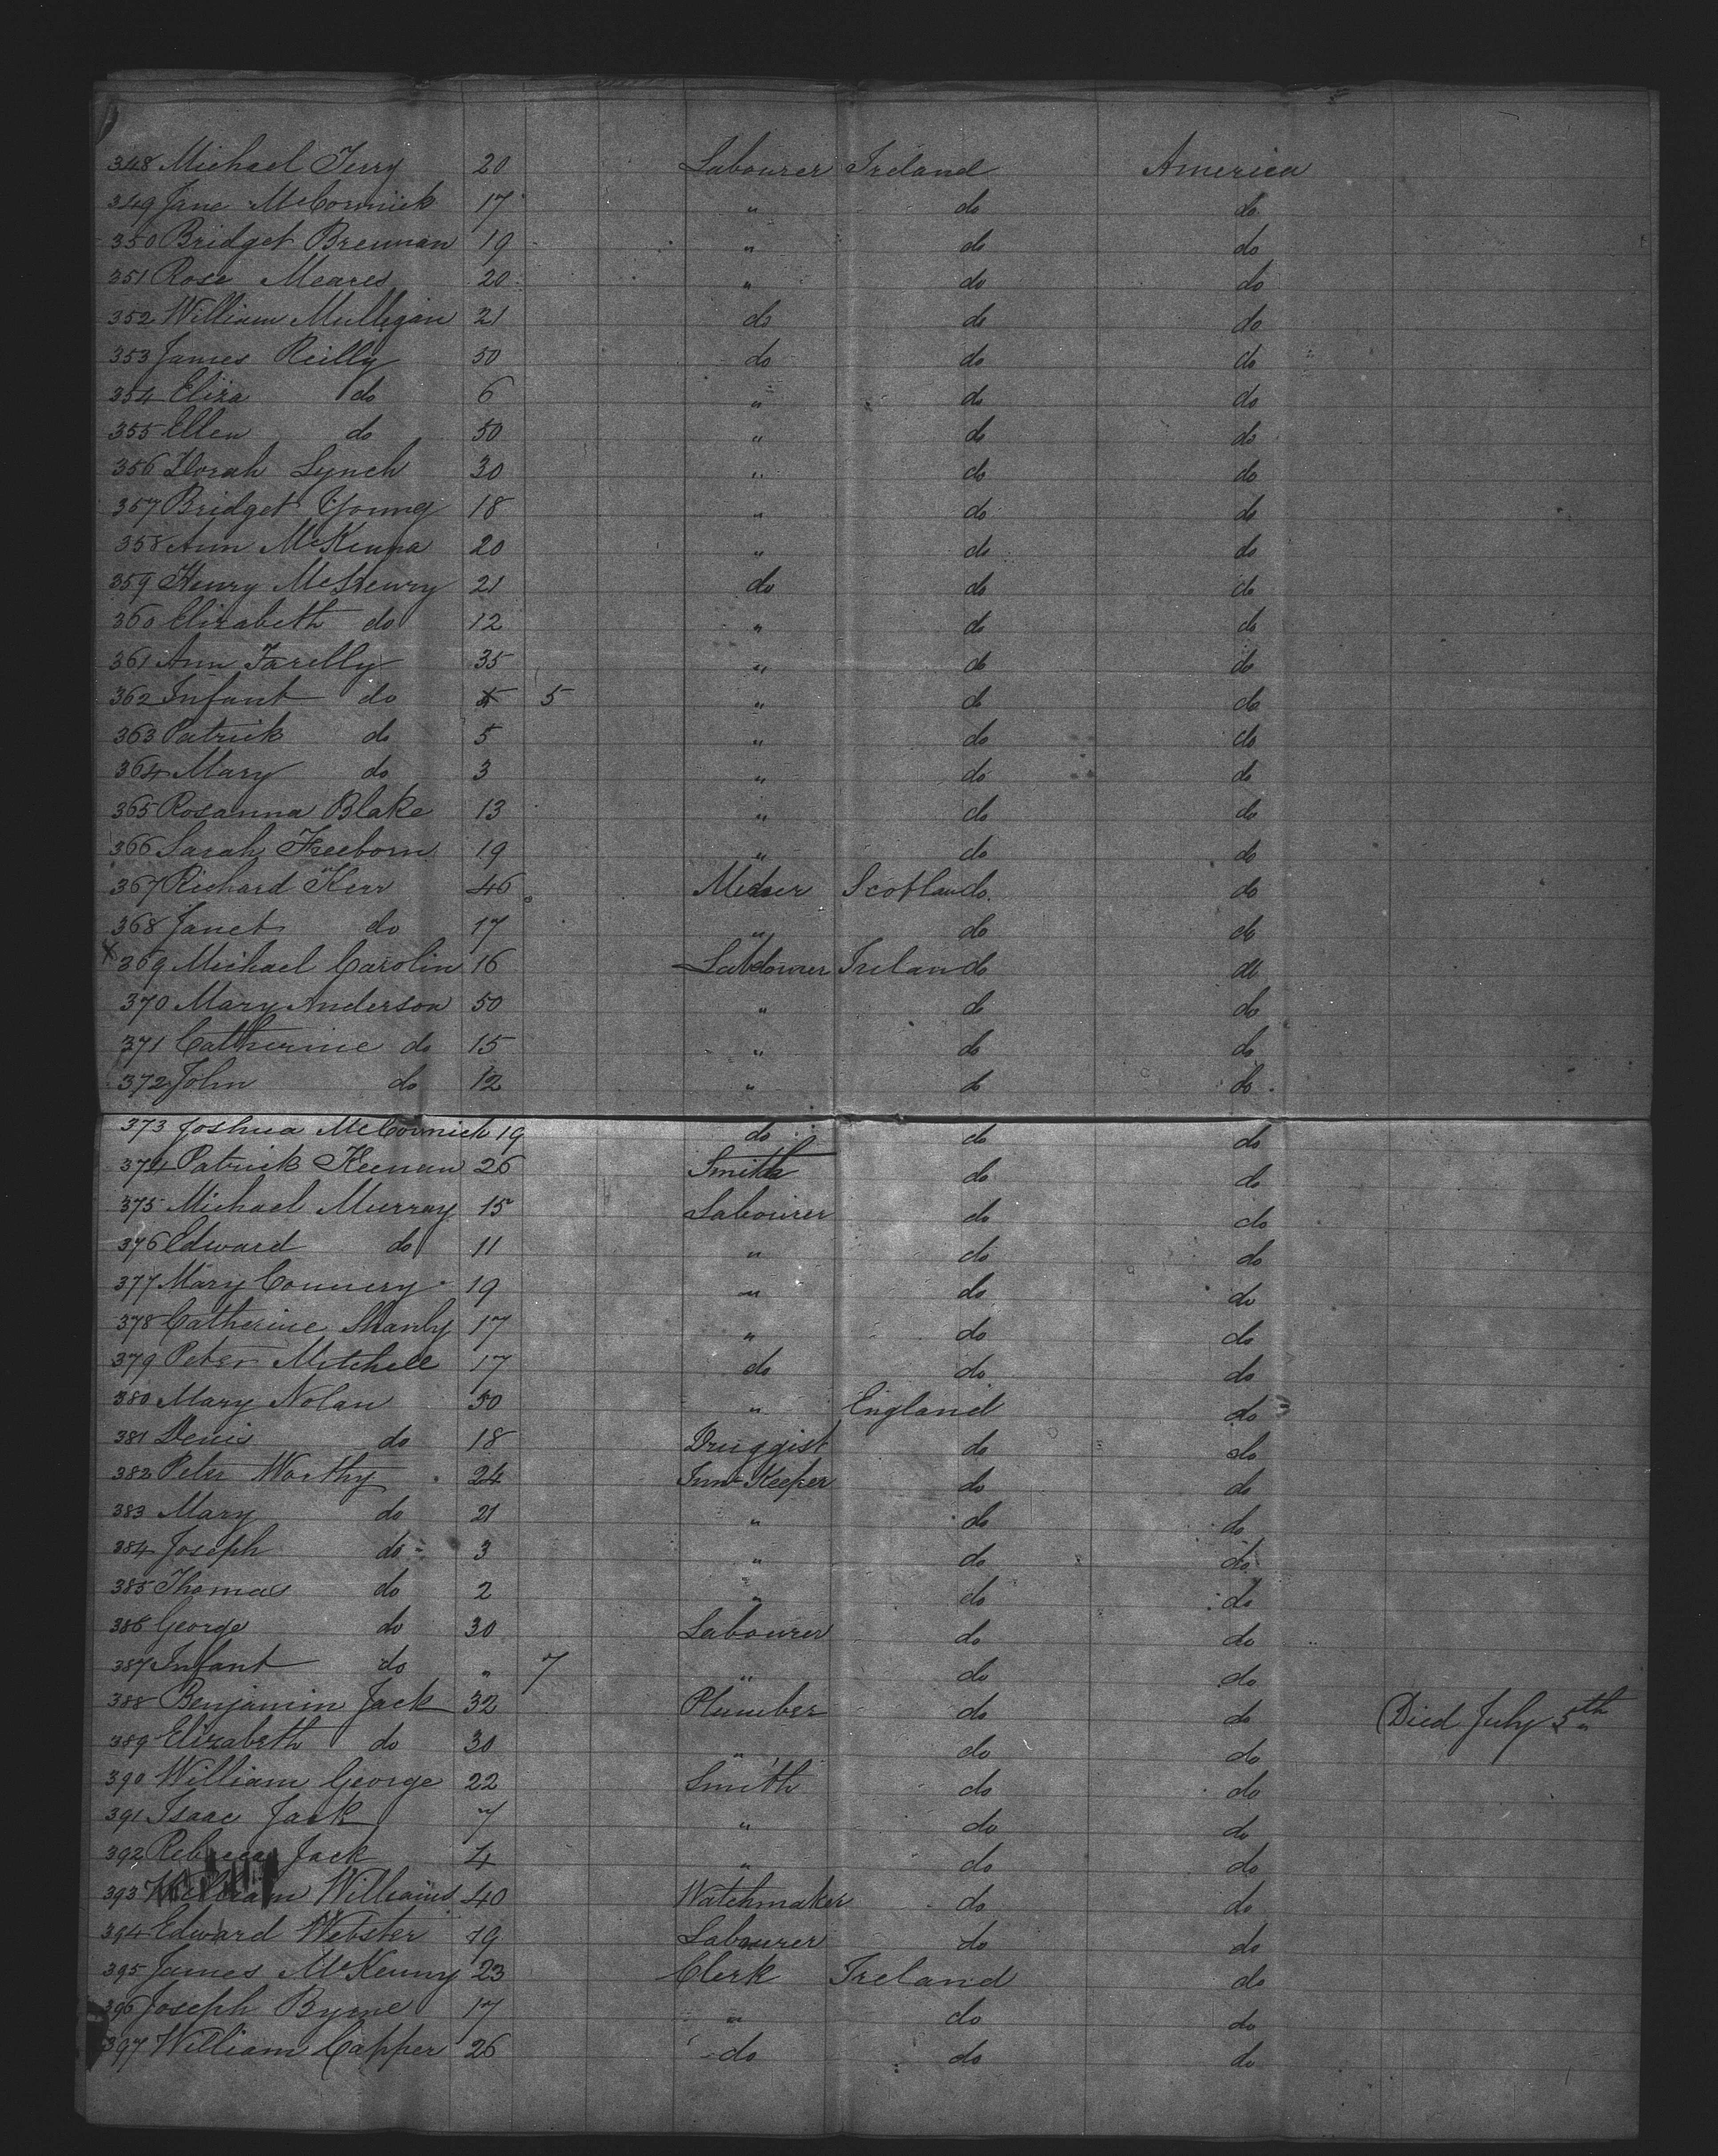 348 Michael Terry 20 Labourer Ireland America
349 Jane McCormick 17 " do do
350 Bridget Brennan 19 " do do
351 Rose Meares 20 " do do
352 William Mulligan 21 do do do
353 James Reilly 50 do do do
354 Eliza do 6 " do do
355 Ellen do 50 " do do
356 Norah Lynch 30 " do do
357 Bridget Young 18 " do do
358 Ann McKenna 20 " do do
359 Henry McHenry 21 do do do
360 Elizabeth do 12 " do do
361 Ann Farelly 35 " do do
362 Infant do 5 " do do
363 Patrick do 5 " do do
364 Mary do 3 " do do
365 Rosanna Blake 13 " do do
366 Sarah Freeborn 19 " do do
367 Richard Kerr 46 Scotland do
368 Janet do 17 " do do
x 369 Michael Carolin 16 Labourer Ireland do
370 Mary Anderson 50 " do do
371 Catherine do 15 " do do
372 John do 12 " do do
373 Joshua McCormick 19 do do do
374 Patrick Keenan 26 Smith do do
375 Michael Murray 15 Labourer do do
376 Edward do 11 " do do
377 Mary Connery 19 " do do
378 Catherine Shanly 17 " do do
379 Peter Mitchell 17 do do do
380 Mary Nolan 50 " England do
381 Denis do 18 Druggist do do
382 Peter Worthy 24 Inn-Keeper do do
383 Mary do 21 " do do
384 Joseph do 3 " do do
385 Thomas do 2 " do do
386 George do 30 Labourer do do
387 Infant do " 7 " do do
388 Benjamin Jack 32 Plumber do do Died July 5th
389 Elizabeth do 30 " do do
390 William George 22 Smith do do
391 Isaac Jack 7 " do do
392 Rebecca Jack 4 " do do
393 William Williams 40 Watchmaker do do
394 Edward Webster 19 Labourer do do
395 James McKenny 23 Clerk Ireland do
396 Joseph Byrne 17 " do do
397 William Capper 26 do do do